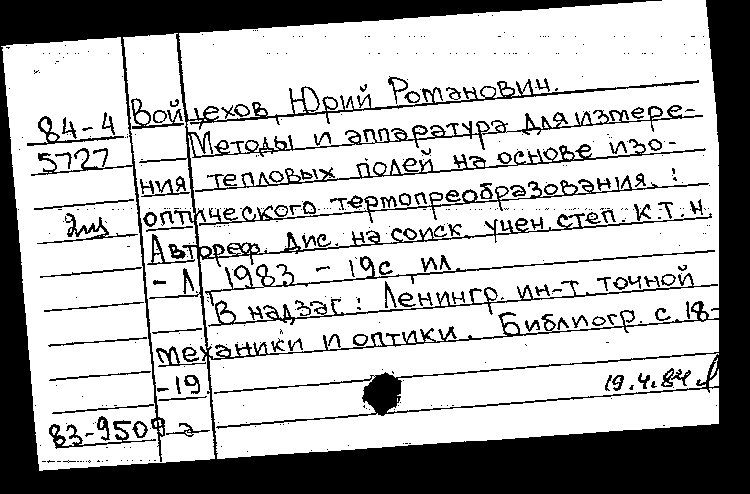 Войцехов, Юрий Романович.
84-4 Методы и аппаратура для измере-
5727 ния тепловых полей на основе изо-
2 оптического термопреобразования. :
Автореф. дис. на соиск. учен. степ. к.т.н.
- Л, 1983 - 19с, ил.
В надзаг: Ленингр. ин-т. точной
механики и оптики. Библиогр. с. 18-
-19.
19.4.84
83-9509 а